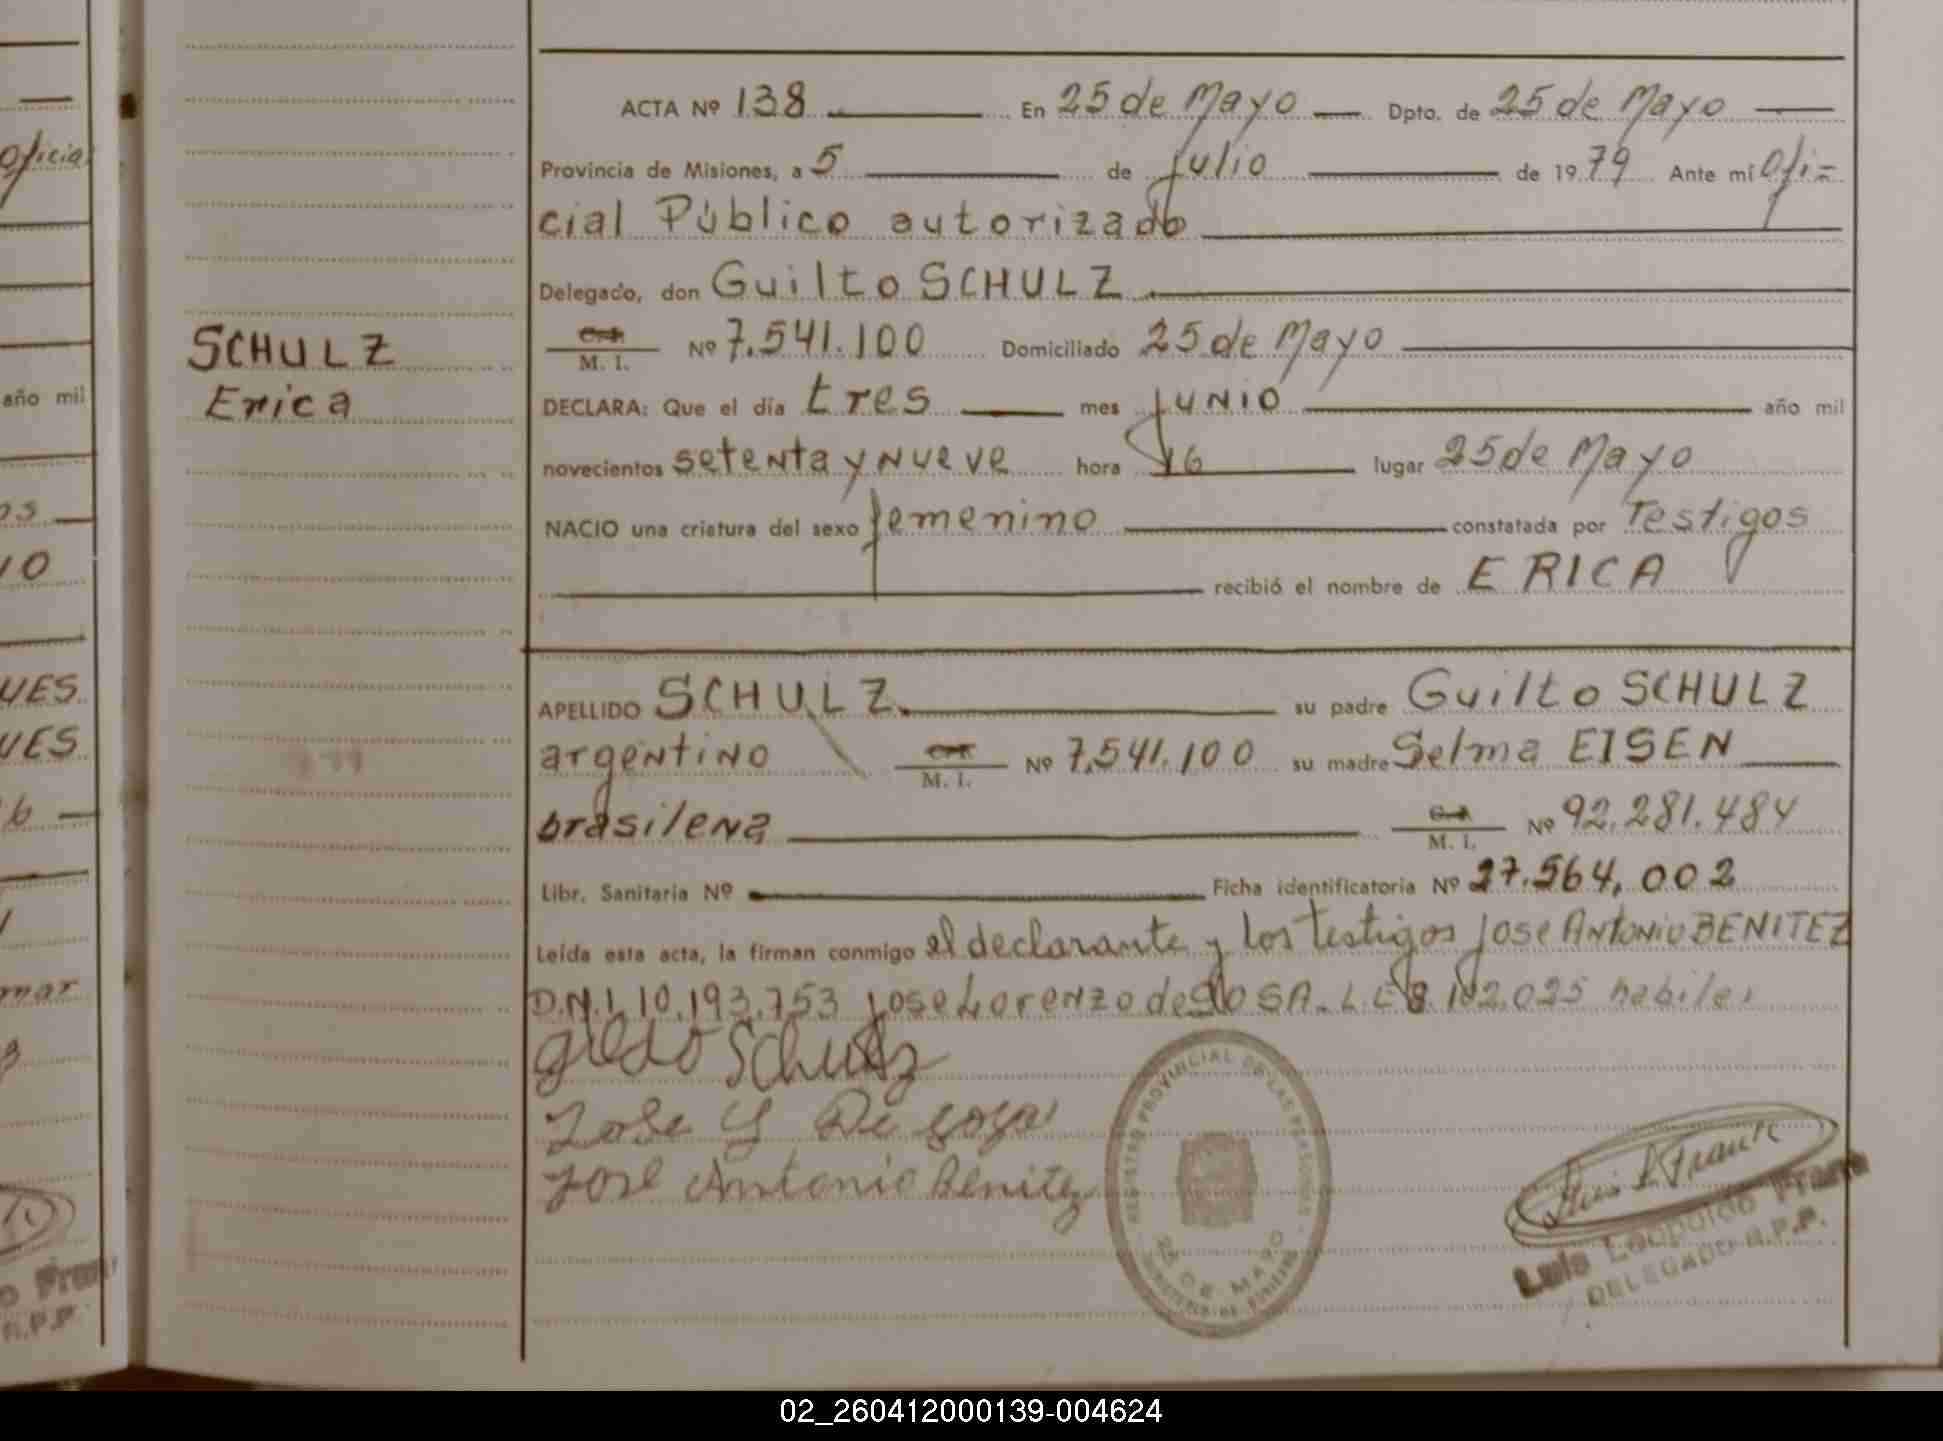 oficial
año mil
10
UES
UES
mar
SCHULZ
Erica
ACTA Nº 138 En 25 de Mayo Dpto. de 25 de Mayo
Provincia de Misiones, a 5 de julio de 1979 Ante mí Ofi=
cial Público autorizado
Delegado, don Guilto SCHULZ
M. I. Nº 7.541.100 Domiciliado 25 de Mayo
DECLARA: Que el día tres mes junio año mil
novecientos setenta y nueve hora 16 lugar 25 de Mayo
NACIO una criatura del sexo femenino constatada por Testigos
recibió el nombre de ERICA
APELLIDO SCHULZ su padre Guilto SCHULZ
argentino M. I. Nº 7.541.100 su madre Selma EISEN
brasilena M. I. Nº 92.281.484
Libr. Sanitaria Nº Ficha identificatoria Nº 27.564.002
Leída esta acta, la firman conmigo el declarante y los testigos jose Antonio BENITEZ
D.N.I. 10.193.753 jose Lorenzo de SOSA. L.E 8.102.025 habiles
gildo Schulz
Jose L De sosa
José Antonio Benitez
REGISTRO PROVINCIAL DE LAS PERSONAS
25 DE MAYO
Luis L Franc
Luis Leopoldo Franc
DELEGADO R.P.P.
02_260412000139-004624